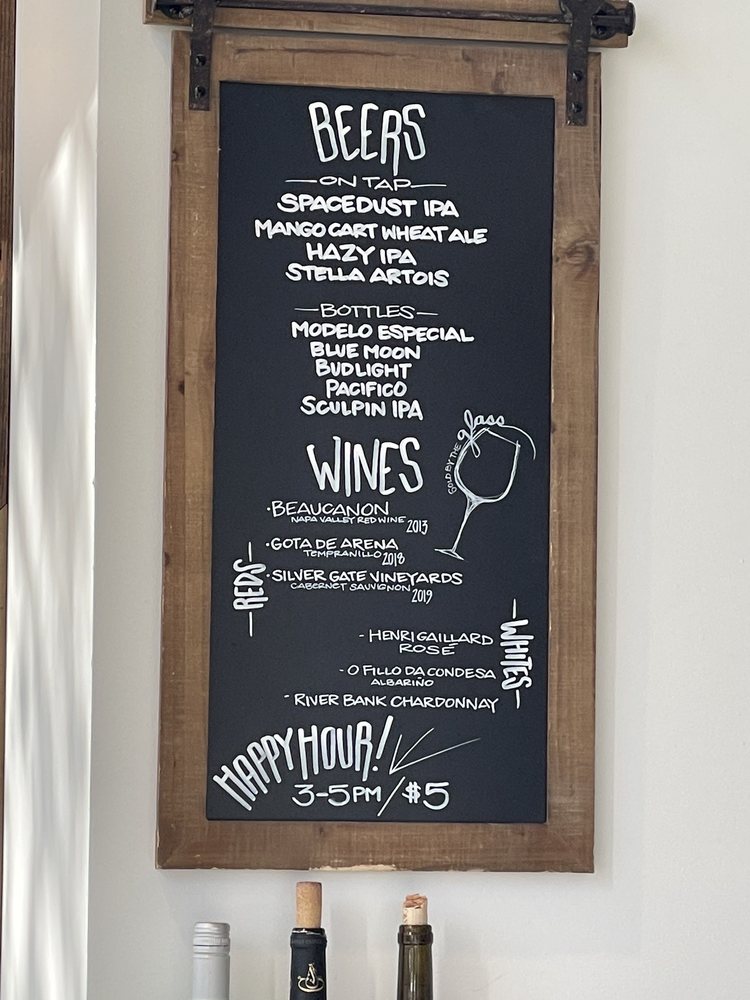 BEERS
ON TAP
SPACEDUST IPA
MANGO CART WHEAT ALE
HAZY IPA
STELLA ARTOIS
BOTTLES
MODELO ESPECIAL
BLUE MOON
BUD LIGHT
PACIFICO
SCULPIN IPA
WINES
SOLD BY THE glass
REDS
·BEAUCANON
NAPA VALLEY RED WINE 2013
·GOTA DE ARENA
TEMPRANILLO 2018
·SILVER GATE VINEYARDS
CABERNET SAUVIGNON 2019
WHITES
- HENRI GAILLARD
ROSÉ
- O FILLO DA CONDESA
ALBARIÑO
- RIVER BANK CHARDONNAY
HAPPY HOUR!
3-5PM/$5